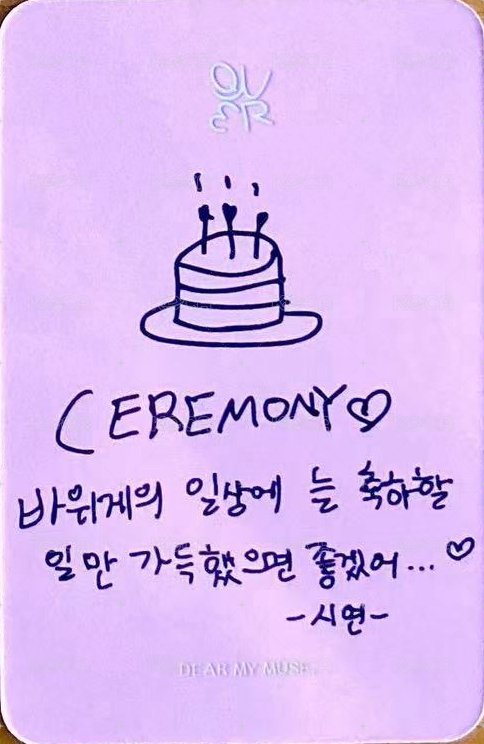 QW
ER
CEREMONY♡
바위게의 일상에 늘 축하할
일만 가득했으면 좋겠어...♡
-시연-
DEAR MY MUSE.